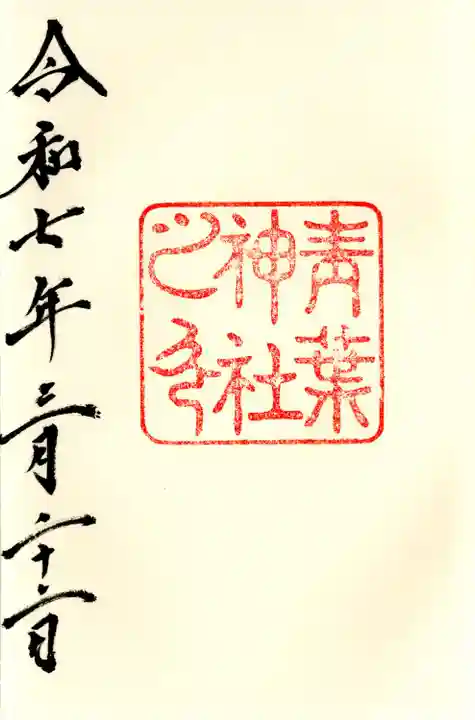 青葉
神社
之印
令和七年三月二十六日